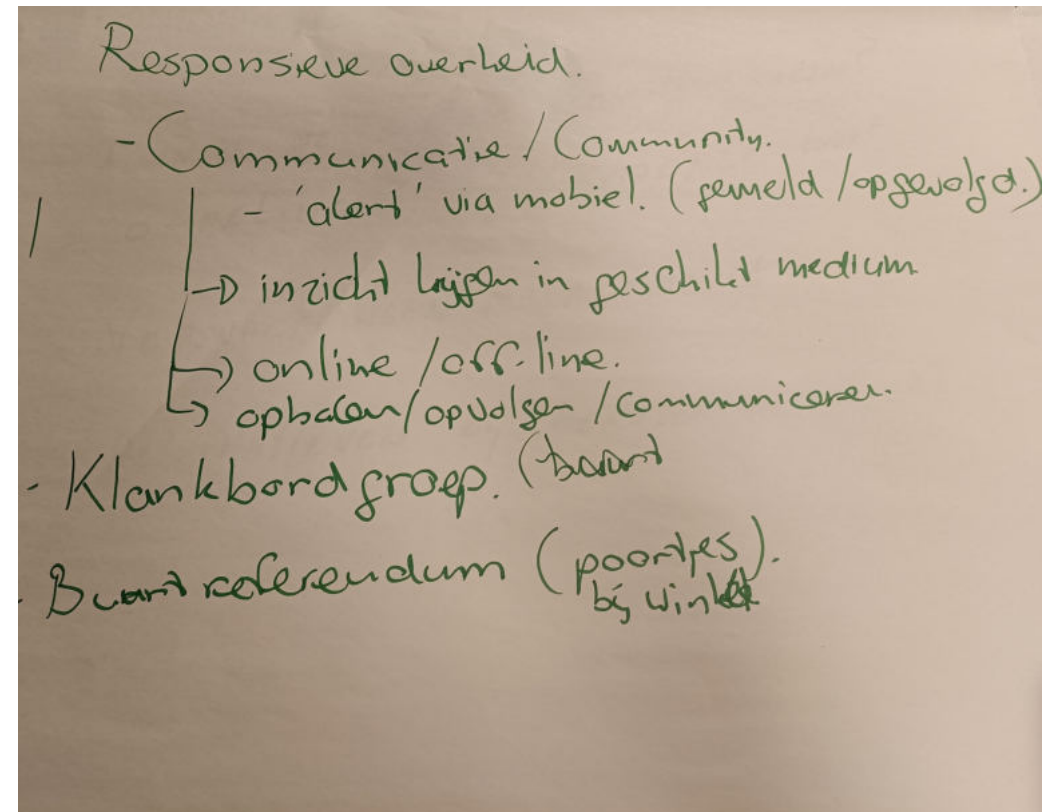 Responsieve overheid.
- Communicatie / Community.
- 'alert' via mobiel. (gemeld / opgevolgd.)
→ inzicht krijgen in geschikt medium
→ online / off-line.
→ ophalen / opvolgen / communiceren.
- Klankbordgroep. (buurt
- Buurtreferendum (poortjes).
bij winkel